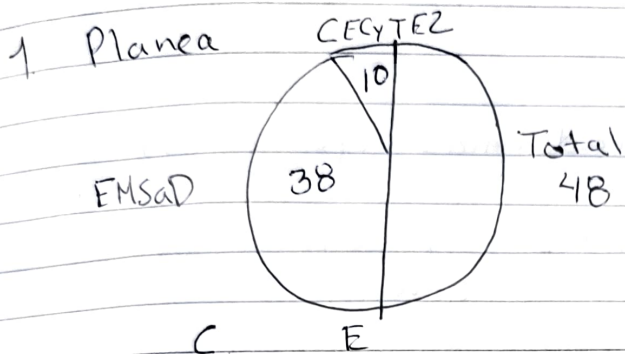 1 Planea
CECyTEZ
10
EMSaD
38
Total
48
C E